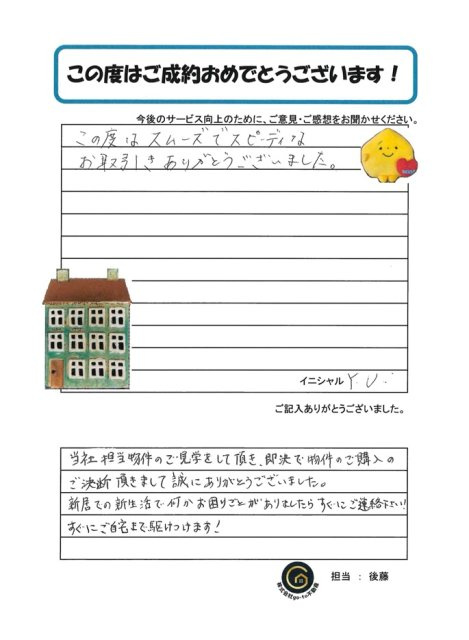 この度はご成約おめでとうございます！
今後のサービス向上のために、ご意見・ご感想をお聞かせください。
この度はスムーズでスピーディな
お取引きありがとうございました。
イニシャル Y.U.
ご記入ありがとうございました。
当社担当物件のご見学をして頂き、即決で物件のご購入の
ご決断頂きまして誠にありがとうございました。
新居での新生活で何かお困りごとがありましたらすぐにご連絡下さい!
すぐにご自宅まで駆けつけます!
株式会社go-to不動産
担当 ： 後藤